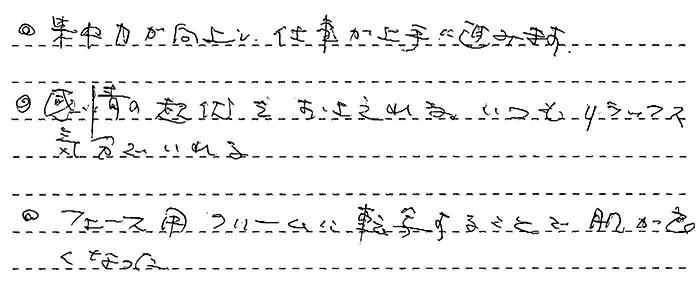 ◎集中力が向上し、仕事が上手に進みます。
◎感情の起伏をおさえれる。いつもリラックス
気分でいれる
◎フェース用クリームに転写することで肌が白
くなった